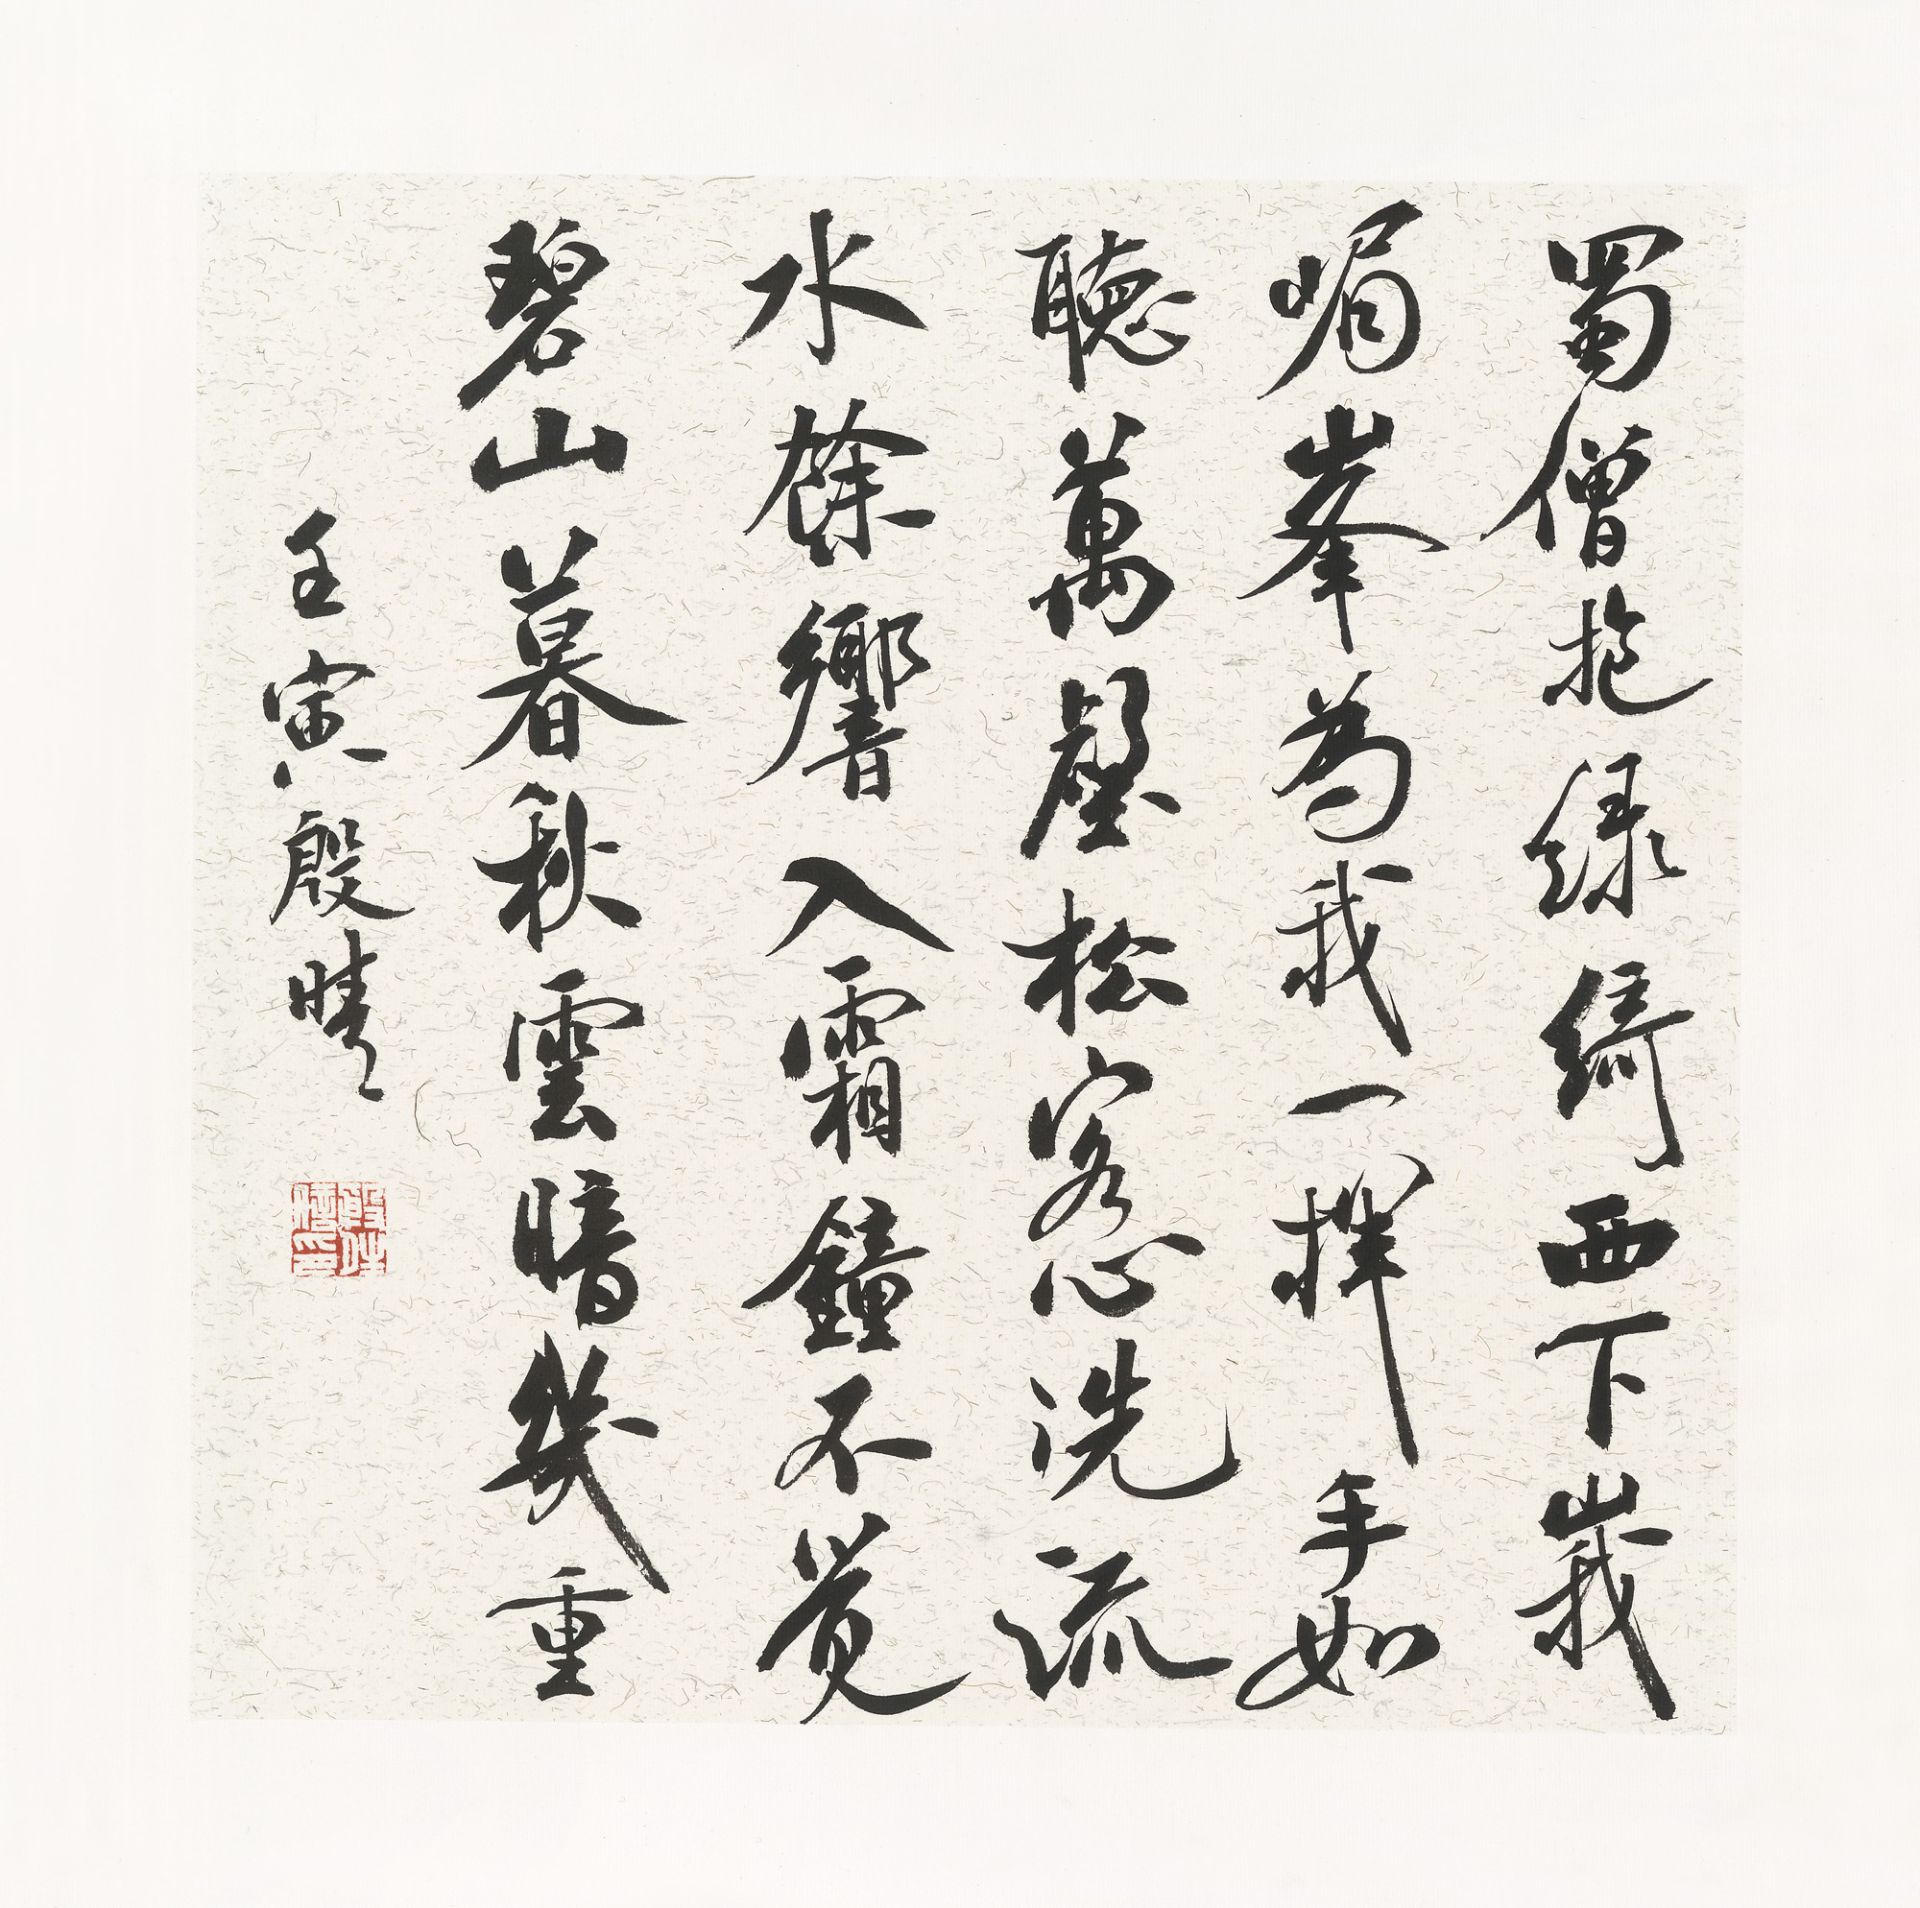 蜀僧抱綠綺西下峩
嵋峯為我一揮手如
聽萬壑松客心洗流
水餘響入霜鐘不覺
碧山暮秋雲暗幾重
壬寅殷晴